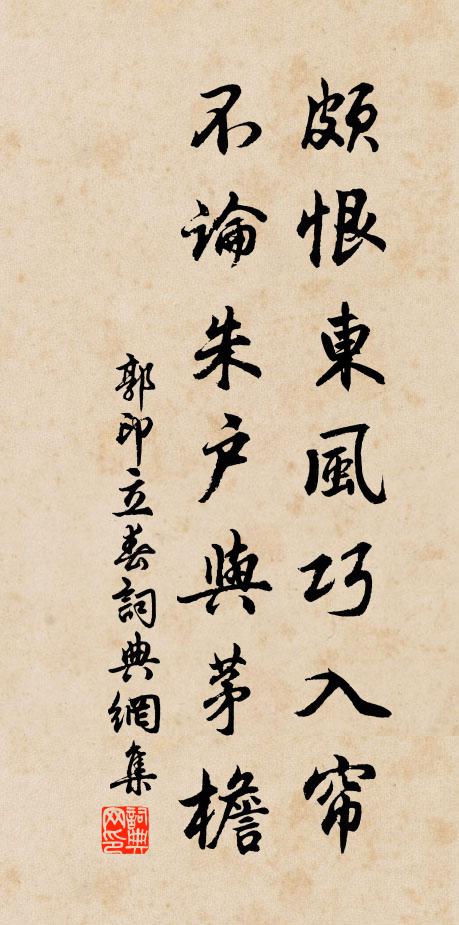 頗恨東風巧入帘
不論朱户與茅檐
郭印立春詞典網集
詞典网印